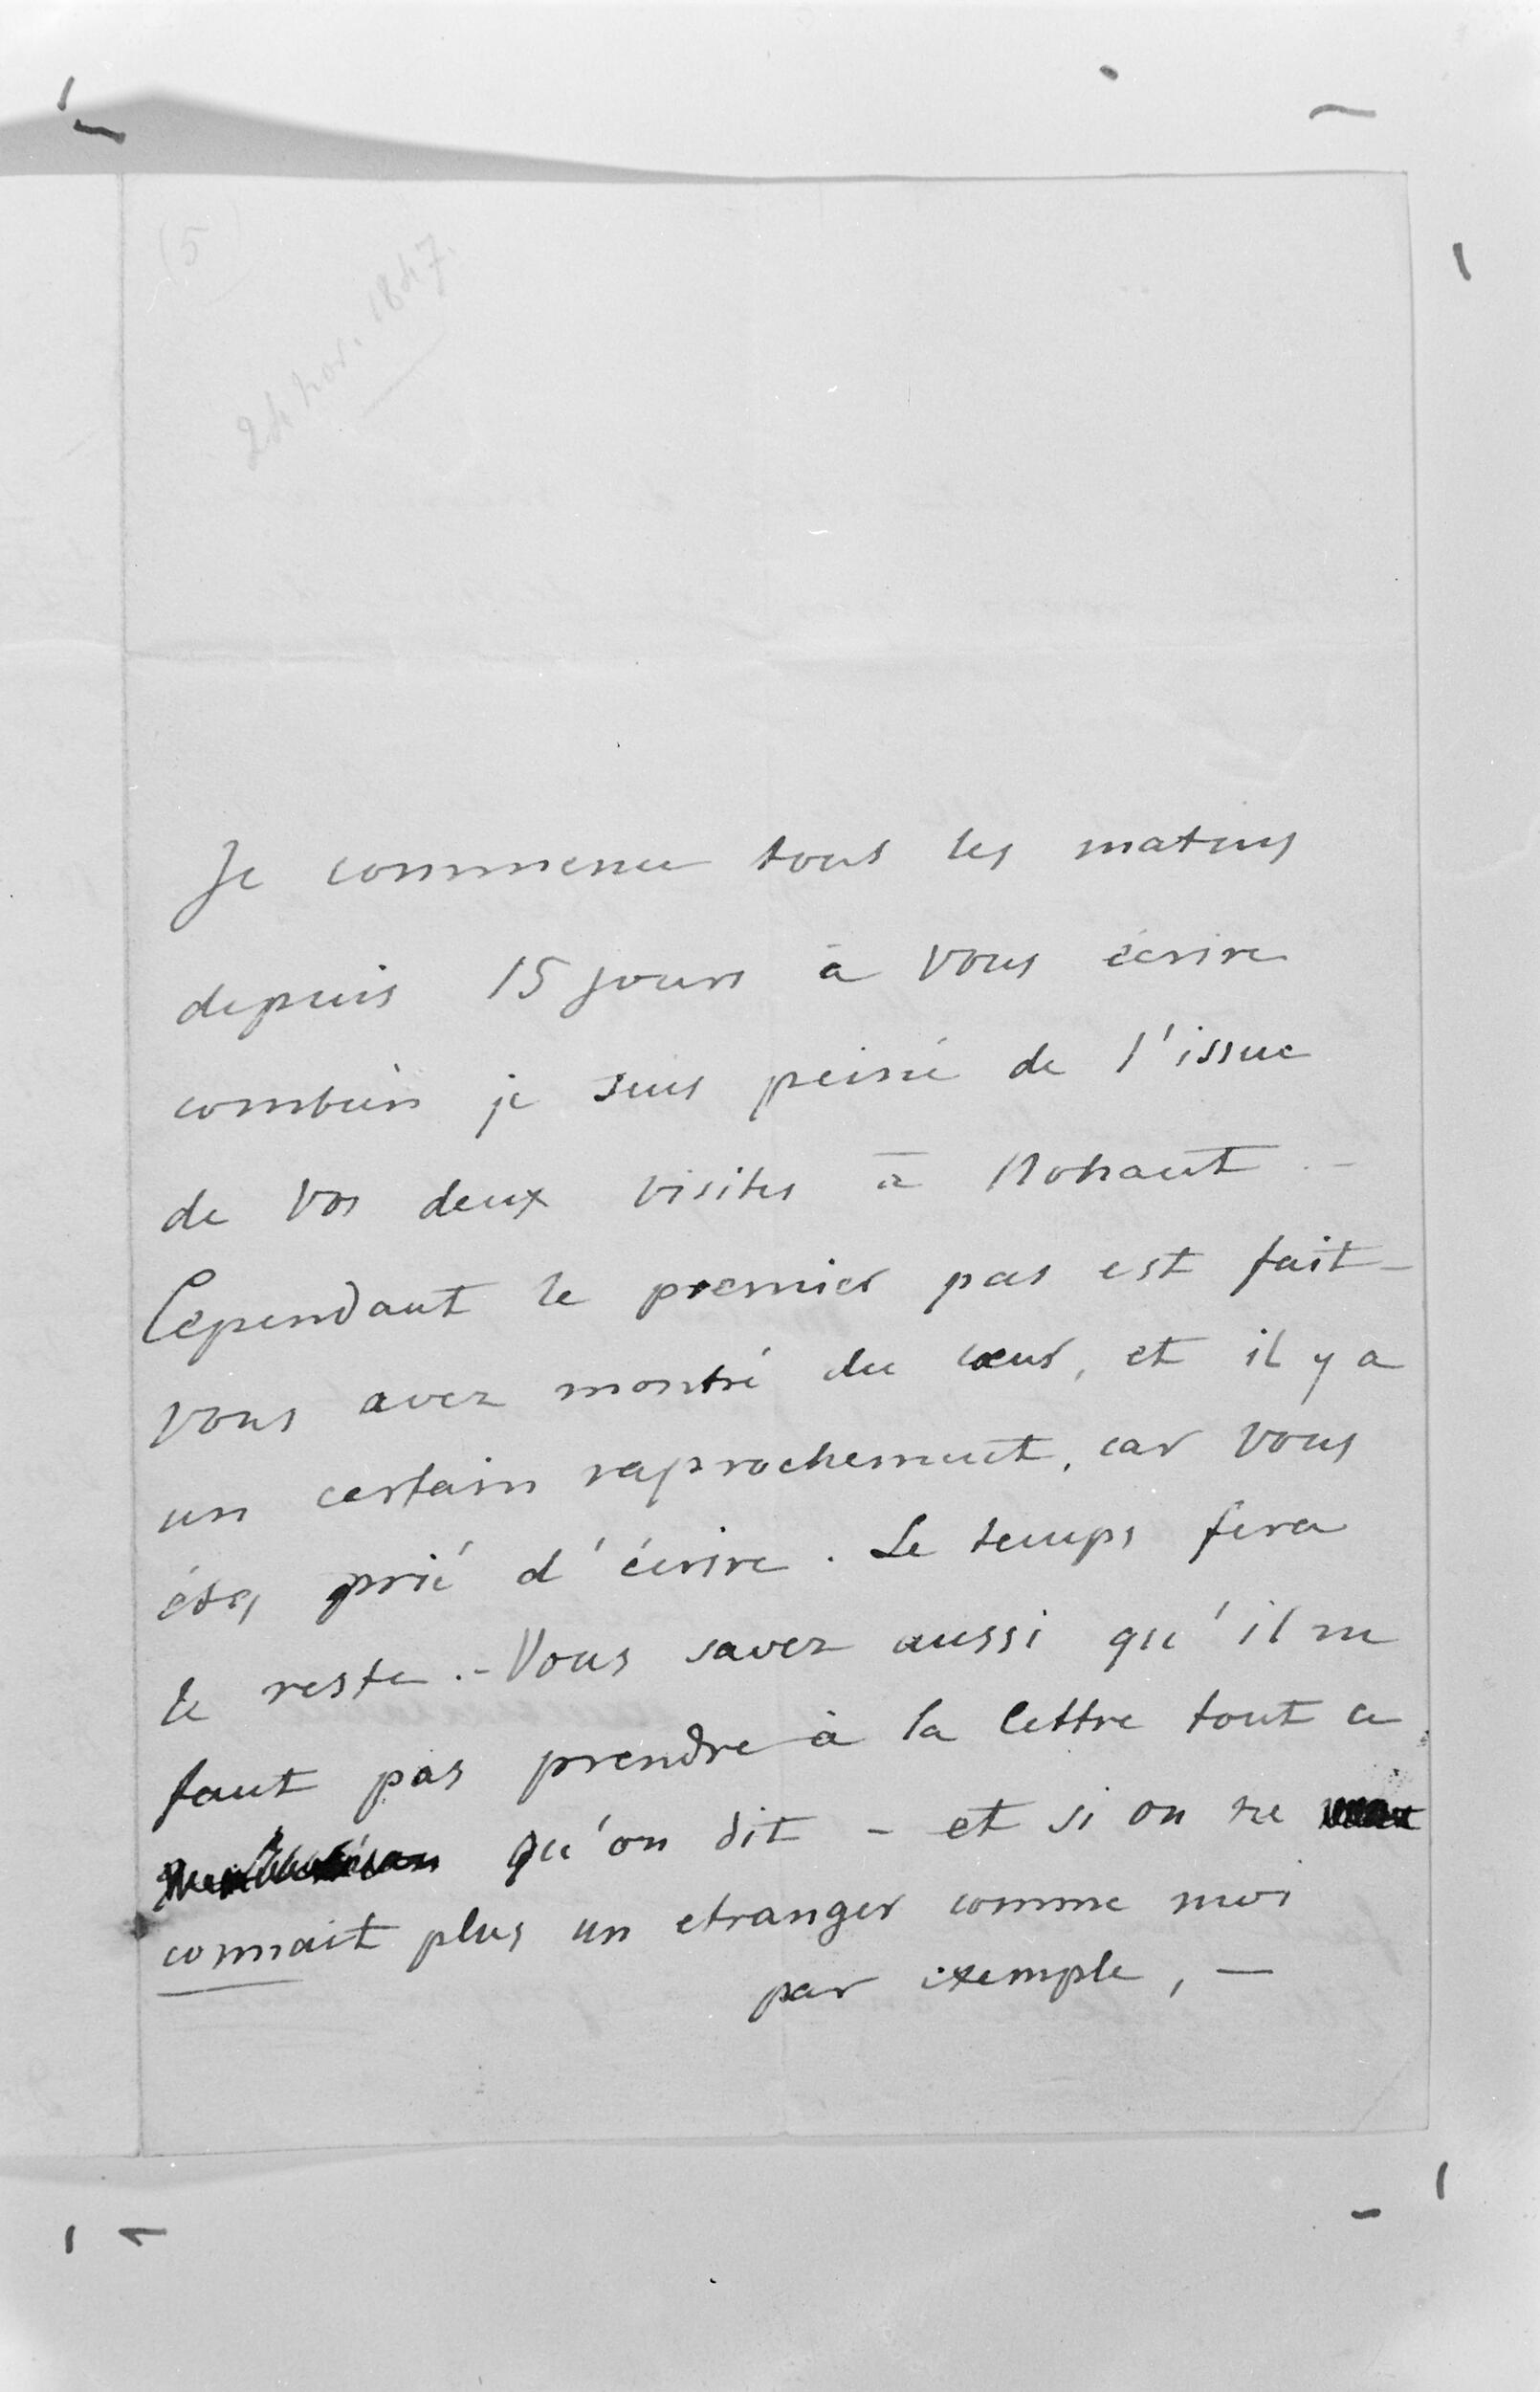 (5)
24 nov. 1847.
Je commence tous les matins
depuis 15 jours à vous écrire
combien je suis peiné de l'issue
de vos deux visites à Nohant. -
Cependant le premier pas est fait -
vous avez montré du cœur, et il y a
un certain raprochement, car vous
étes prié d'écrire. Le temps fera
le reste. - Vous savez aussi qu'il ne
faut pas prendre à la lettre tout ce
qu'on dit - et si on ne
connait plus un etranger comme moi
par exemple, -